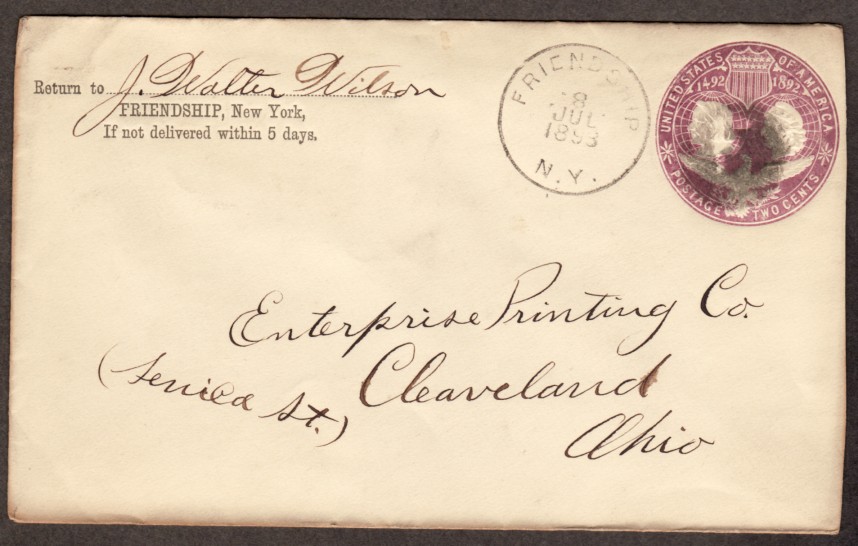 Return to J. Walter Wilson
FRIENDSHIP, New York,
If not delivered within 5 days.
FRIENDSHIP
8
JUL
1893
N.Y.
UNITED STATES OF AMERICA
1492 1892
POSTAGE TWO CENTS
Enterprise Printing Co.
(Seneca St.) Cleaveland
Ohio